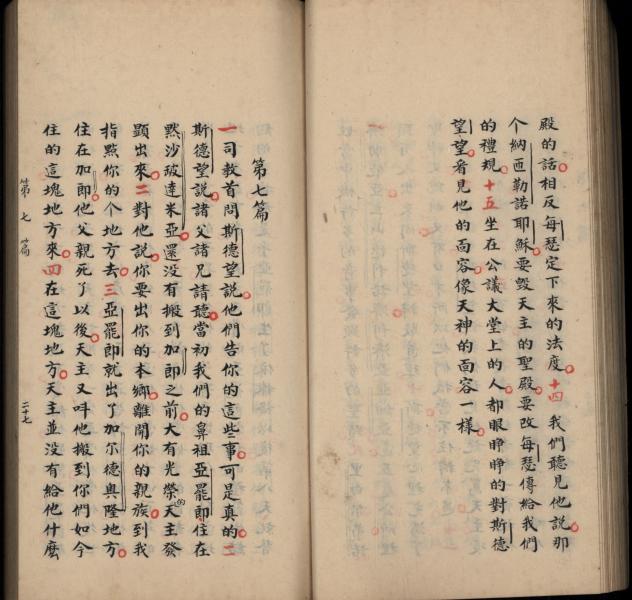 殿的話相反每瑟定下來的法度十四我們聽見他說那
个納匝勒諾耶穌要毀天主的聖殿要改每瑟傳給我們
的禮規十五坐在公議大堂上的人都眼睜睜的對斯德
望望看見他的面容像天神的面容一樣
第七篇
一司教首問斯德望說他們告你的這些事可是真的二
斯德望說諸父諸兄請聽當初我們的鼻祖亞罷郎住在
黙沙玻達米亞還没有搬到加郎之前大有光榮的天主發
顯出來二對他說你要出你的本鄉離開你的親族到我
指點你的个地方去三亞罷郎就出了加尔德奥隆地方
住在加郎他父親死了以後天主又呌他搬到你們如今
住的這塊地方來四在這塊地方天主並没有給他什麽
第七篇
二十七